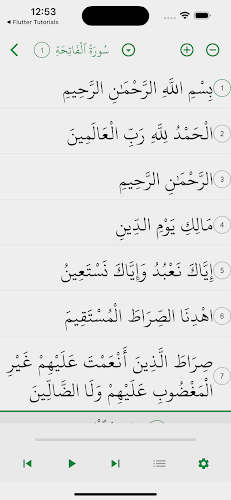 12:53
◀ Flutter Tutorials
سُورَةُ ٱلْفَاتِحَةِ 1
بِسْمِ اللَّهِ الرَّحْمَٰنِ الرَّحِيمِ 1
الْحَمْدُ لِلَّهِ رَبِّ الْعَالَمِينَ 2
الرَّحْمَٰنِ الرَّحِيمِ 3
مَالِكِ يَوْمِ الدِّينِ 4
إِيَّاكَ نَعْبُدُ وَإِيَّاكَ نَسْتَعِينُ 5
اهْدِنَا الصِّرَاطَ الْمُسْتَقِيمَ 6
صِرَاطَ الَّذِينَ أَنْعَمْتَ عَلَيْهِمْ غَيْرِ 7
الْمَغْضُوبِ عَلَيْهِمْ وَلَا الضَّالِّينَ